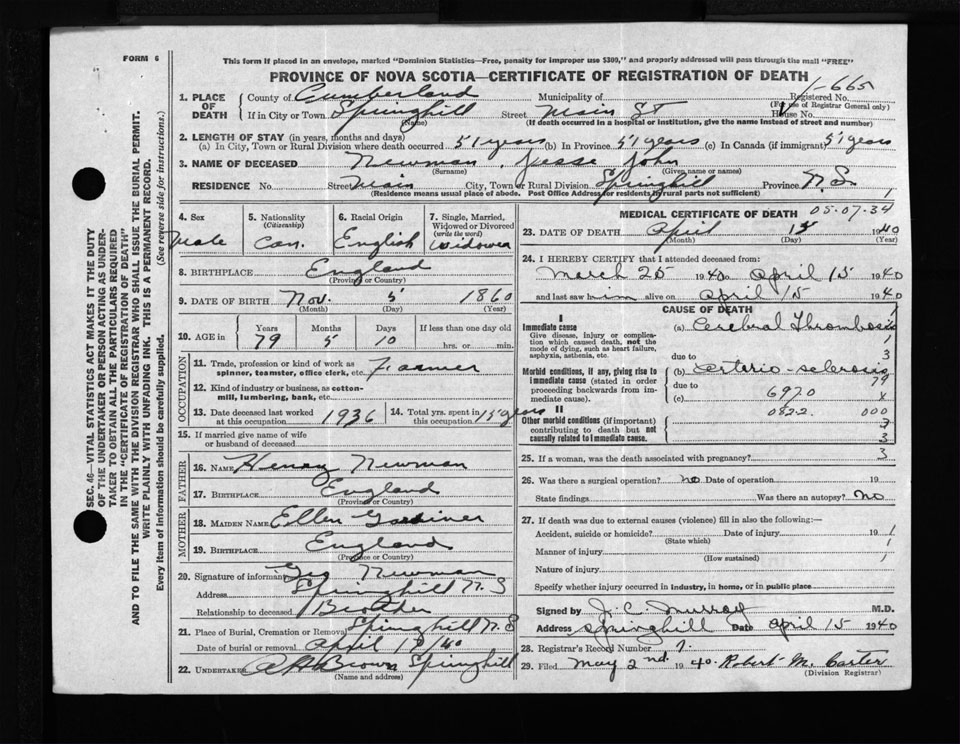 FORM 6
This form if placed in an envelope, marked "Dominion Statistics—Free, penalty for improper use $300," and properly addressed will pass through the mail "FREE"
PROVINCE OF NOVA SCOTIA—CERTIFICATE OF REGISTRATION OF DEATH
1-665
1. PLACE OF DEATH
County of Cumberland Municipality of Registered No.
(For use of Registrar General only)
If in City or Town Springhill Street Main St House No.
(Name) (If death occurred in a hospital or institution, give the name instead of street and number)
2. LENGTH OF STAY (in years, months and days)
(a) In City, Town or Rural Division where death occurred 51 years (b) In Province 51 years (c) In Canada (if immigrant) 51 years
3. NAME OF DECEASED Newman, Jesse John
(Surname) (Given name or names)
RESIDENCE No. Street Main City, Town or Rural Division Springhill Province N.S.
(Residence means usual place of abode. Post Office Address for residents in rural parts not sufficient)
4. Sex Male
5. Nationality (Citizenship) Can.
6. Racial Origin English
7. Single, Married, Widowed or Divorced (write the word) Widower
8. BIRTHPLACE England
(Province or Country)
9. DATE OF BIRTH Nov. 5 1860
(Month) (Day) (Year)
10. AGE in Years 79 Months 5 Days 10 If less than one day old hrs. or min.
OCCUPATION
11. Trade, profession or kind of work as spinner, teamster, office clerk, etc. Farmer
12. Kind of industry or business, as cotton-mill, lumbering, bank, etc.
13. Date deceased last worked at this occupation 1936
14. Total yrs. spent in this occupation 15 years
15. If married give name of wife or husband of deceased
FATHER
16. NAME Henry Newman
17. BIRTHPLACE England
(Province or Country)
MOTHER
18. MAIDEN NAME Ellen Gardiner
19. BIRTHPLACE England
(Province or Country)
20. Signature of informant Geo Newman
Address Springhill N.S
Relationship to deceased Brother
21. Place of Burial, Cremation or Removal Springhill N.S
Date of burial or removal April 17/40
22. UNDERTAKER Brown Springhill
(Name and address)
MEDICAL CERTIFICATE OF DEATH 05-07-34
23. DATE OF DEATH April 15 1940
(Month) (Day) (Year)
24. I HEREBY CERTIFY that I attended deceased from:
March 25 1940 to April 15 1940
and last saw him alive on April 15 1940
CAUSE OF DEATH
I
Immediate cause (a) Cerebral Thrombosis
Give disease, injury or complication which caused death, not the mode of dying, such as heart failure, asphyxia, asthenia, etc.
due to
Morbid conditions, if any, giving rise to immediate cause (stated in order proceeding backwards from immediate cause).
(b) Arterio-sclerosis
due to 79
(c) 6970 X
II 0822 000
Other morbid conditions (if important) contributing to death but not causally related to immediate cause.
25. If a woman, was the death associated with pregnancy? 3
26. Was there a surgical operation? no Date of operation 19
State findings Was there an autopsy? No
27. If death was due to external causes (violence) fill in also the following:—
Accident, suicide or homicide? Date of injury 19
(State which)
Manner of injury
(How sustained)
Nature of injury
Specify whether injury occurred in industry, in home, or in public place
Signed by J. C. Murray M.D.
Address Springhill Date April 15 1940
28. Registrar's Record Number 7.
29. Filed May 2nd 1940. Robert M. Carter
(Division Registrar)
SEC. 46—VITAL STATISTICS ACT MAKES IT THE DUTY
OF THE UNDERTAKER OR PERSON ACTING AS UNDER-
TAKER TO OBTAIN ALL THE PARTICULARS REQUIRED
IN THE "CERTIFICATE OF REGISTRATION OF DEATH"
AND TO FILE THE SAME WITH THE DIVISION REGISTRAR WHO SHALL ISSUE THE BURIAL PERMIT.
WRITE PLAINLY WITH UNFADING INK. THIS IS A PERMANENT RECORD.
Every item of information should be carefully supplied. (See reverse side for instructions.)